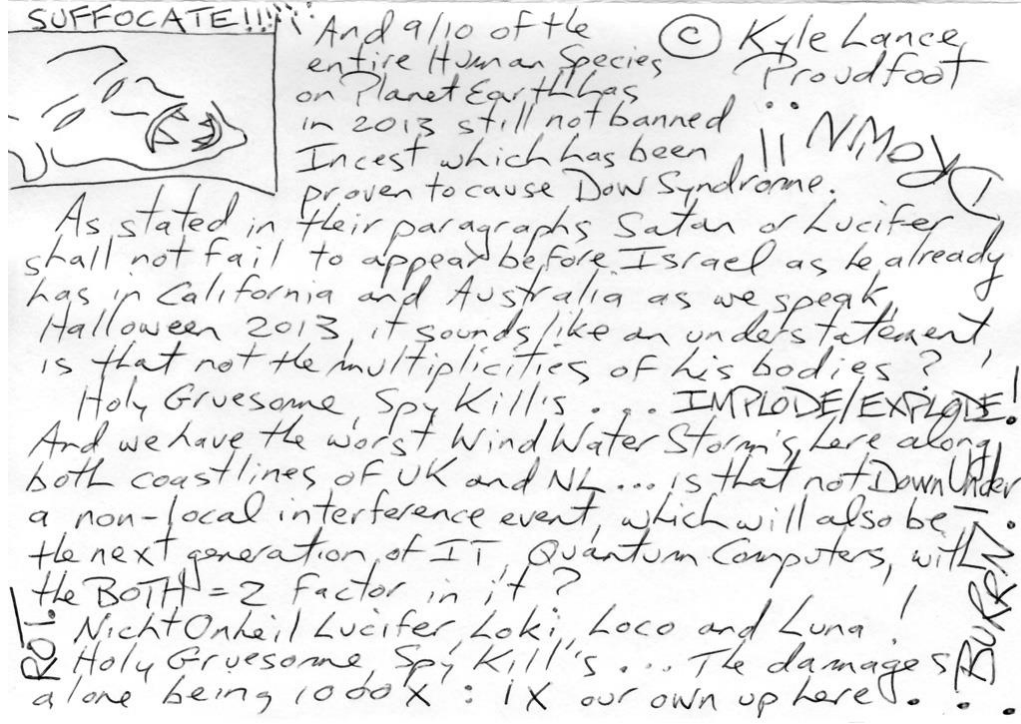 SUFFOCATE!!!!!!
And 9/10 of the
entire Human Species
on Planet Earth has
in 2013 still not banned
Incest which has been
proven to cause Dow Syndrome.
© Kyle Lance
Proudfoot
DROWN!!
As stated in their paragraphs Satan or Lucifer
shall not fail to appear before Israel as he already
has in California and Australia as we speak,
Halloween 2013, it sounds like an understatement,
is that not the multiplicities of his bodies?
Holy Gruesome, Spy Kill's .... IMPLODE/EXPLODE!
And we have the worst Wind Water Storm's here along
both coastlines of UK and NL... is that not Down Under
a non-local interference event, which will also be
the next generation of IT, Quantum Computers, with
the BOTH = 2 factor in it?
Nicht Onheil Lucifer, Loki, Loco and Luna!
Holy Gruesome, Spy Kill's ... The damages
alone being 1000X : 1X our own up here!...
ROT!
BURRN!!